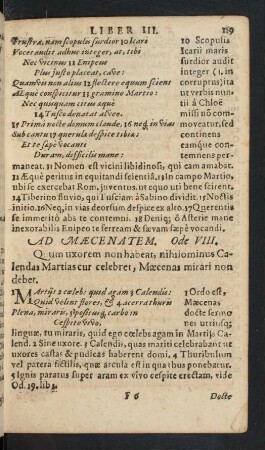 LIBER III. 119
Frustra, nam scopulis surdior 10 Icari
Voces audit adhuc integer, at, tibi
Nec vicinus 11 Enipeus
Plus justo placeat, cave:
Quamvis non alius 12 flectere equum sciens
Æquè conspicitur 13 gramino Martio:
Nec quisquam citus æquè
14 Tusco denatat alveo.
15 Prima nocte domum claude, 16 neq; in vias
Sub cantu 17 querulæ despice tibiæ:
Et te sæpe vocanti
Duram, difficilis mane:
10 Scopulis
Icarii maris
surdior audit
integer (i. in
corruptus) i;
ut verbis nun-
tii à Chloë
missi nō com-
moveatur, sed
continens
eamque con-
temnens per-
maneat. 11 Nomen est vicini libidinosi, qui eam amabat.
12 Æquè peritus in equitandi scientiâ. 13 In campo Martio,
ubi se exercebat Rom. juventus, ut equo uti bene scirent.
14 Tiberino fluvio, qui Tusciam à Sabino dividit. 15 Noctis
initio. 16 Neq, in vias deorsum despice ex alto. 17 Querentis
se immeritò abs te contemni. 18 Deniq; ô Asterie mane
inexorabilis Enipeo te ferream & sævam sæpè vocandi.
AD MÆCENATEM. Ode VIII.
Quum uxorem non habeat, nihilominus Ca-
lendas Martias cur celebret, Mæcenas mirari non
debet.
MArtiis 2 cælebs quid agam 3 Calendis:
Quid velint flores, & 4 acerra thuris
Plena, miraris, positusq, carbo in
Cespite vivo,
1 Ordo est,
Mæcenas
docte sermo
nes utriusq;
linguæ, tu miraris, quid ego cœlebs agam in Martiis Ca-
lend. 2 Sine uxore. 3 Calendis, quas mariti celebrabant ut
uxores castas & pudicas haberent domi. 4 Thuribulum
vel patera fictilis, quæ arcula est in qua thus ponebatur.
5 Ignis paratus super aram ex vivo cespite erectam, vide
Od. 19. lib. 1.
F 6 Docte